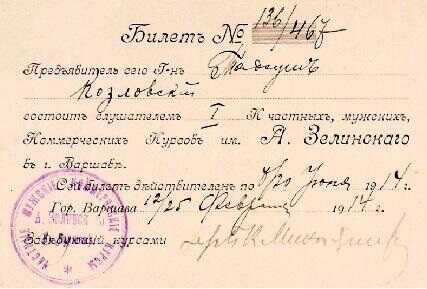 Билетъ № 136/467
Предъявитель сего Г-нъ Тадеушъ
Козловскій
состоитъ слушателемъ I К частныхъ, мужскихъ,
Коммерческихъ Курсовъ им. А. Зелинскаго
въ г. Варшавѣ.
Сей билетъ дѣйствителенъ по 7/20 Іюня 1914 г.
Гор. Варшава 12/25 Февраля 1914 г.
Завѣдующій курсами